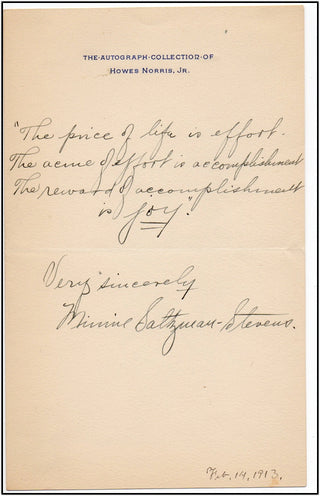 THE·AUTOGRAPH·COLLECTION·OF
HOWES NORRIS, JR.
"The price of life is effort.
The acme of effort is accomplishment
The reward of accomplishment
is joy".
Very sincerely
Minnie Saltzman-Stevens.
Feb. 14, 1913.